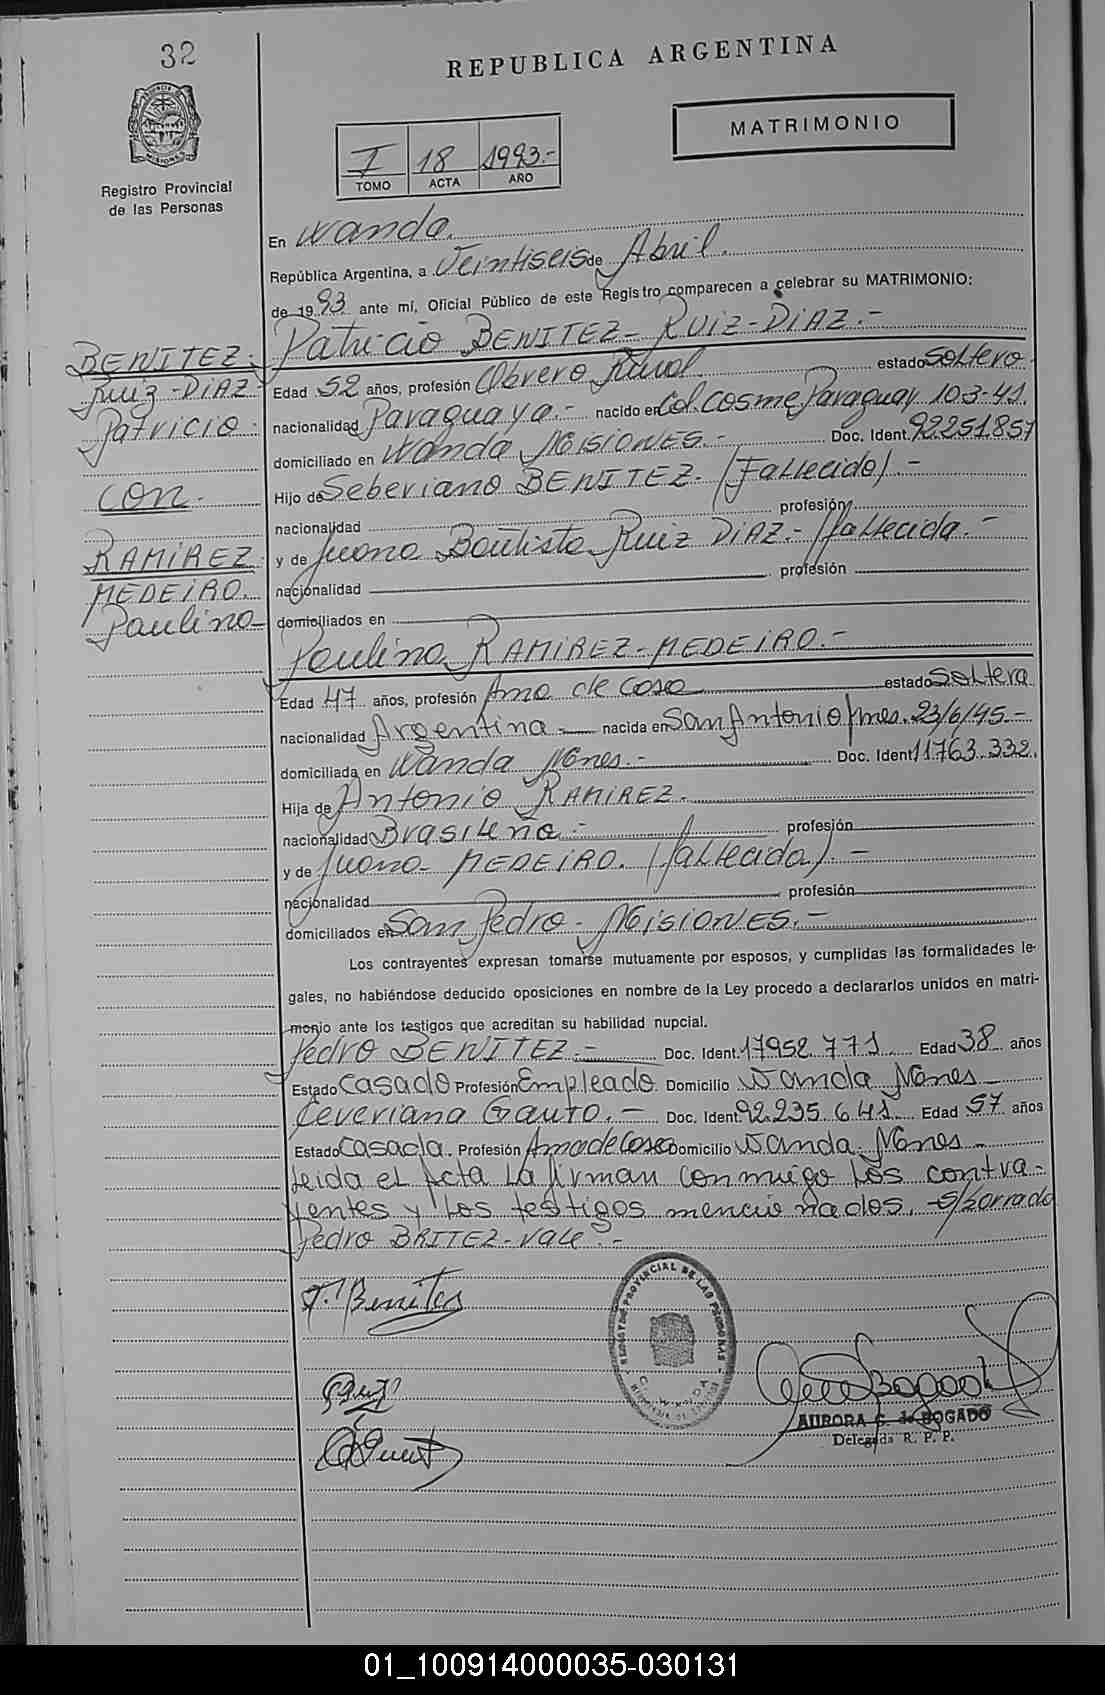 32
REPUBLICA ARGENTINA
MATRIMONIO
I 18 1993.-
TOMO ACTA AÑO
Registro Provincial
de las Personas
En Wanda.
República Argentina, a Veintiseis de Abril.
de 1993 ante mí, Oficial Público de este Registro comparecen a celebrar su MATRIMONIO:
Patricio BENITEZ- RUIZ-DIAZ.-
BENITEZ.
Ruiz-DIAZ
Patricio.
con.
RAMIREZ
MEDEIRO.
Paulina-
Edad 52 años, profesión Obrero Rural. estado SOLtero.
nacionalidad Paraguaya.- nacido en Col. COSME Paraguay 10-3-41.
domiciliado en Wanda MISIONES.- Doc. Ident. 92251857
Hijo de Seberiano BENITEZ. (FaLLecido).-
nacionalidad profesión
y de Juana Bautista Ruiz DIAZ.- (faLLecida.-
nacionalidad profesión
domiciliados en
Paulina RAMIREZ-MEDEIRO.-
Edad 47 años, profesión Ama de casa estado SOLtera
nacionalidad Argentina.- nacida en San Antonio Mnes. 23/6/45.-
domiciliada en Wanda Mnes.- Doc. Ident. 11763.332.
Hija de Antonio RAMIREZ.
nacionalidad BrasiLeña.- profesión
y de Juana- MEDEIRO. (faLLecida).-
nacionalidad profesión
domiciliados en San Pedro- MISIONES.-
Los contrayentes expresan tomarse mutuamente por esposos, y cumplidas las formalidades le-
gales, no habiéndose deducido oposiciones en nombre de la Ley procedo a declararlos unidos en matri-
monio ante los testigos que acreditan su habilidad nupcial.
Pedro BENITEZ.- Doc. Ident. 17952 771 Edad 38 años
Estado Casado Profesión Empleado Domicilio Wanda Mnes
Ceveriana Gauto.- Doc. Ident. 92.235.641 Edad 57 años
Estado Casada. Profesión Ama de Casa Domicilio Wanda. Mnes-
Leida el Acta La firman conmigo Los contra-
yentes y Los testigos mencionados.- S/borrado
Pedro BRITEZ-Vale.-
P. Benites
REGISTRO PROVINCIAL DE LAS PERSONAS
AURORA G. de BOGADO
Delegada R. P. P.
01_100914000035-030131